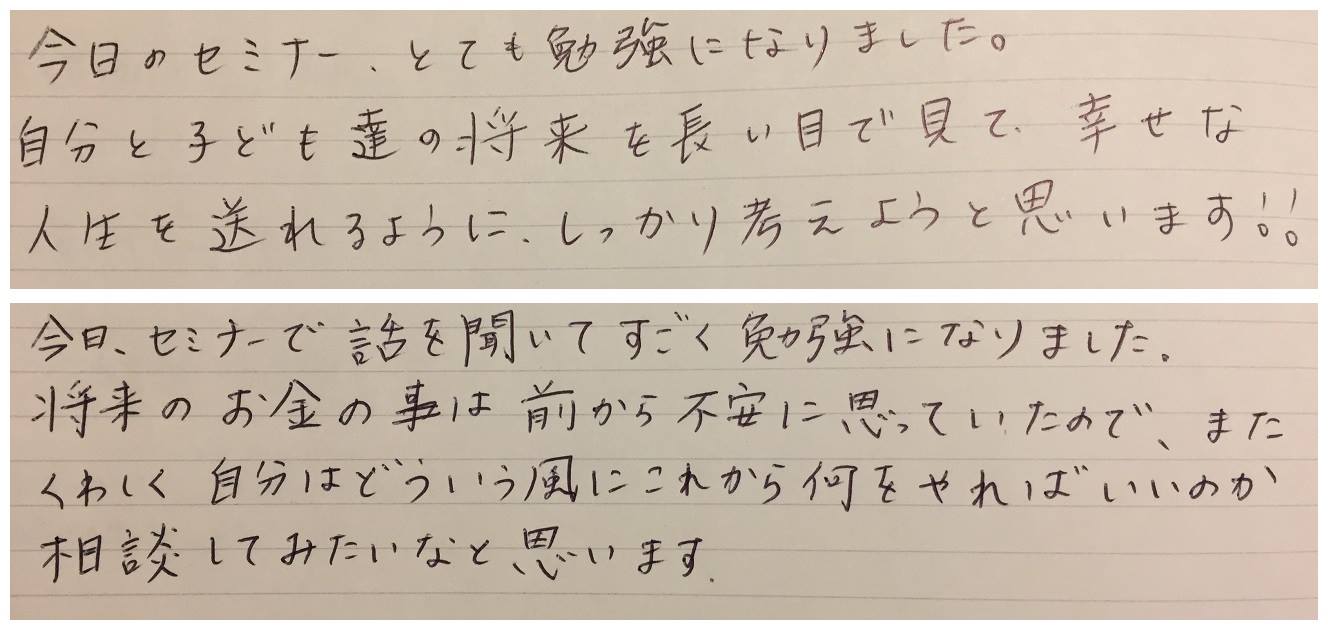 今日のセミナー、とても勉強になりました。
自分と子ども達の将来を長い目で見て、幸せな
人生を送れるように、しっかり考えようと思います!!
今日、セミナーで話を聞いてすごく勉強になりました。
将来のお金の事は前から不安に思っていたので、また
くわしく自分はどういう風にこれから何をやればいいのか
相談してみたいなと思います。